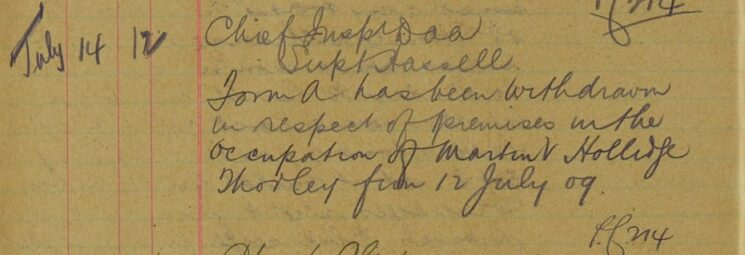 July 14 12
Chief Inspr Daa
Supt Hassell.
Form A has been withdrawn
in respect of premises in the
Occupation of Martin V Hollidge
Thorley from 12 July 09.
214